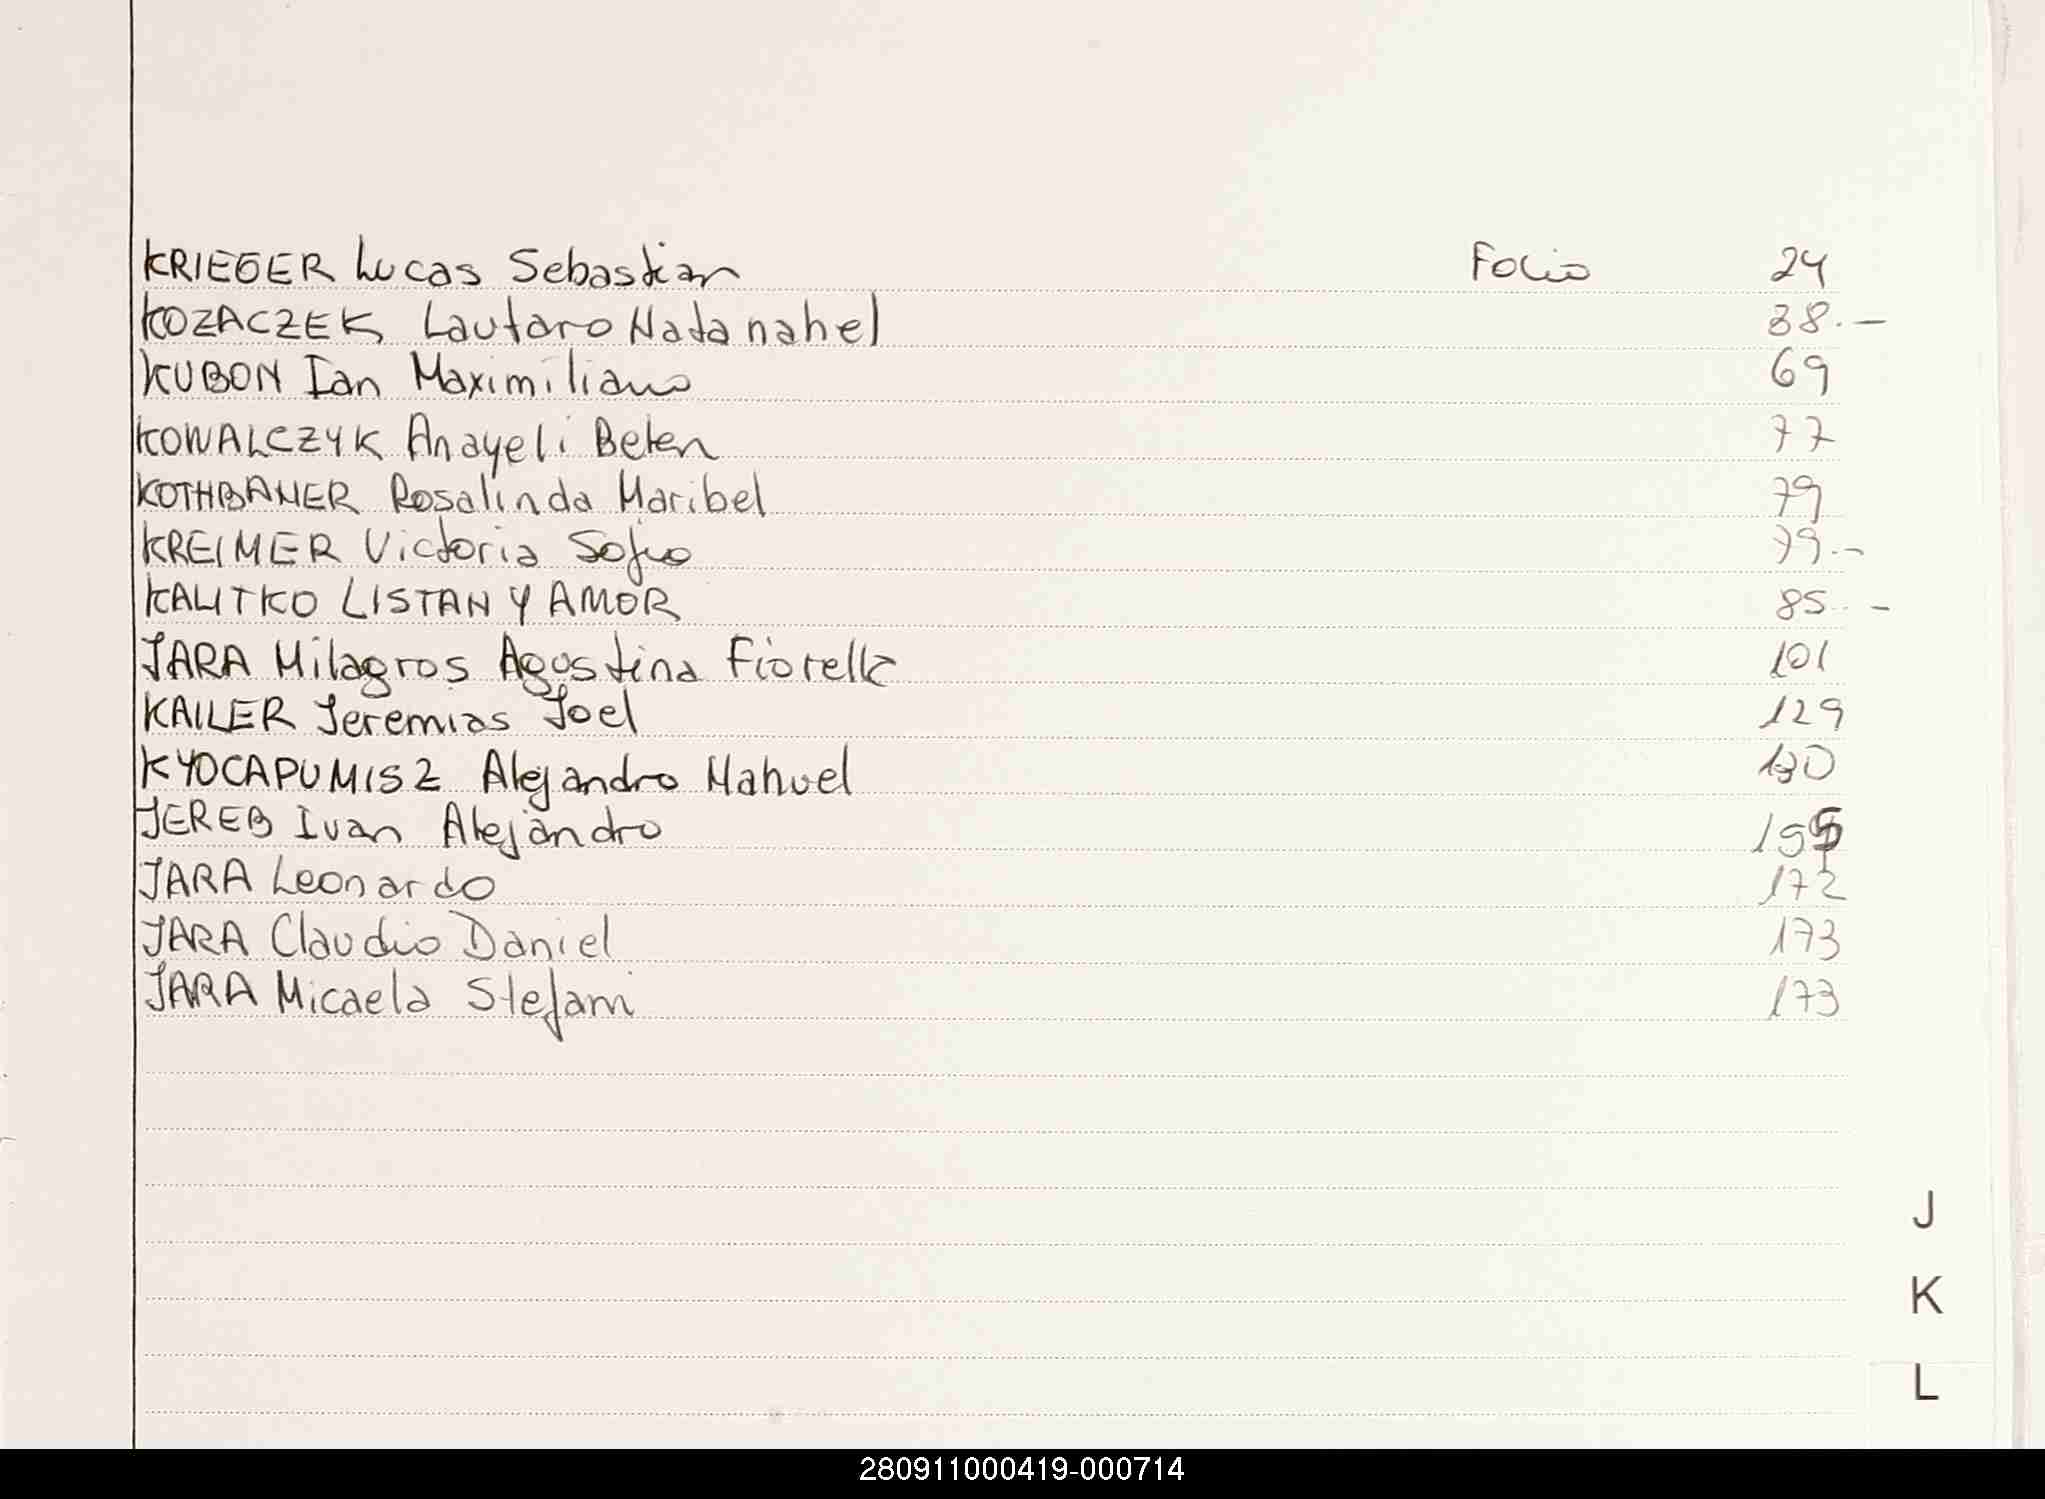 KRIEGER Lucas Sebastian Folio 24
KOZACZEK Lautaro Natanahel 38.-
KUBON Ian Maximiliano 69
KOWALCZYK Anayeli Belen 77
KOTHBANER Rosalinda Maribel 79
KREIMER Victoria Sofia 79.-
KALITKO LISTAN Y AMOR 85.-
JARA Milagros Agostina Fiorella 101
KAILER Jeremias Joel 129
KYOCAPUMISZ Alejandro Nahuel 130
JEREB Ivan Alejandro 155
JARA Leonardo 172
JARA Claudio Daniel 173
JARA Micaela Stefani 173
J
K
L
280911000419-000714